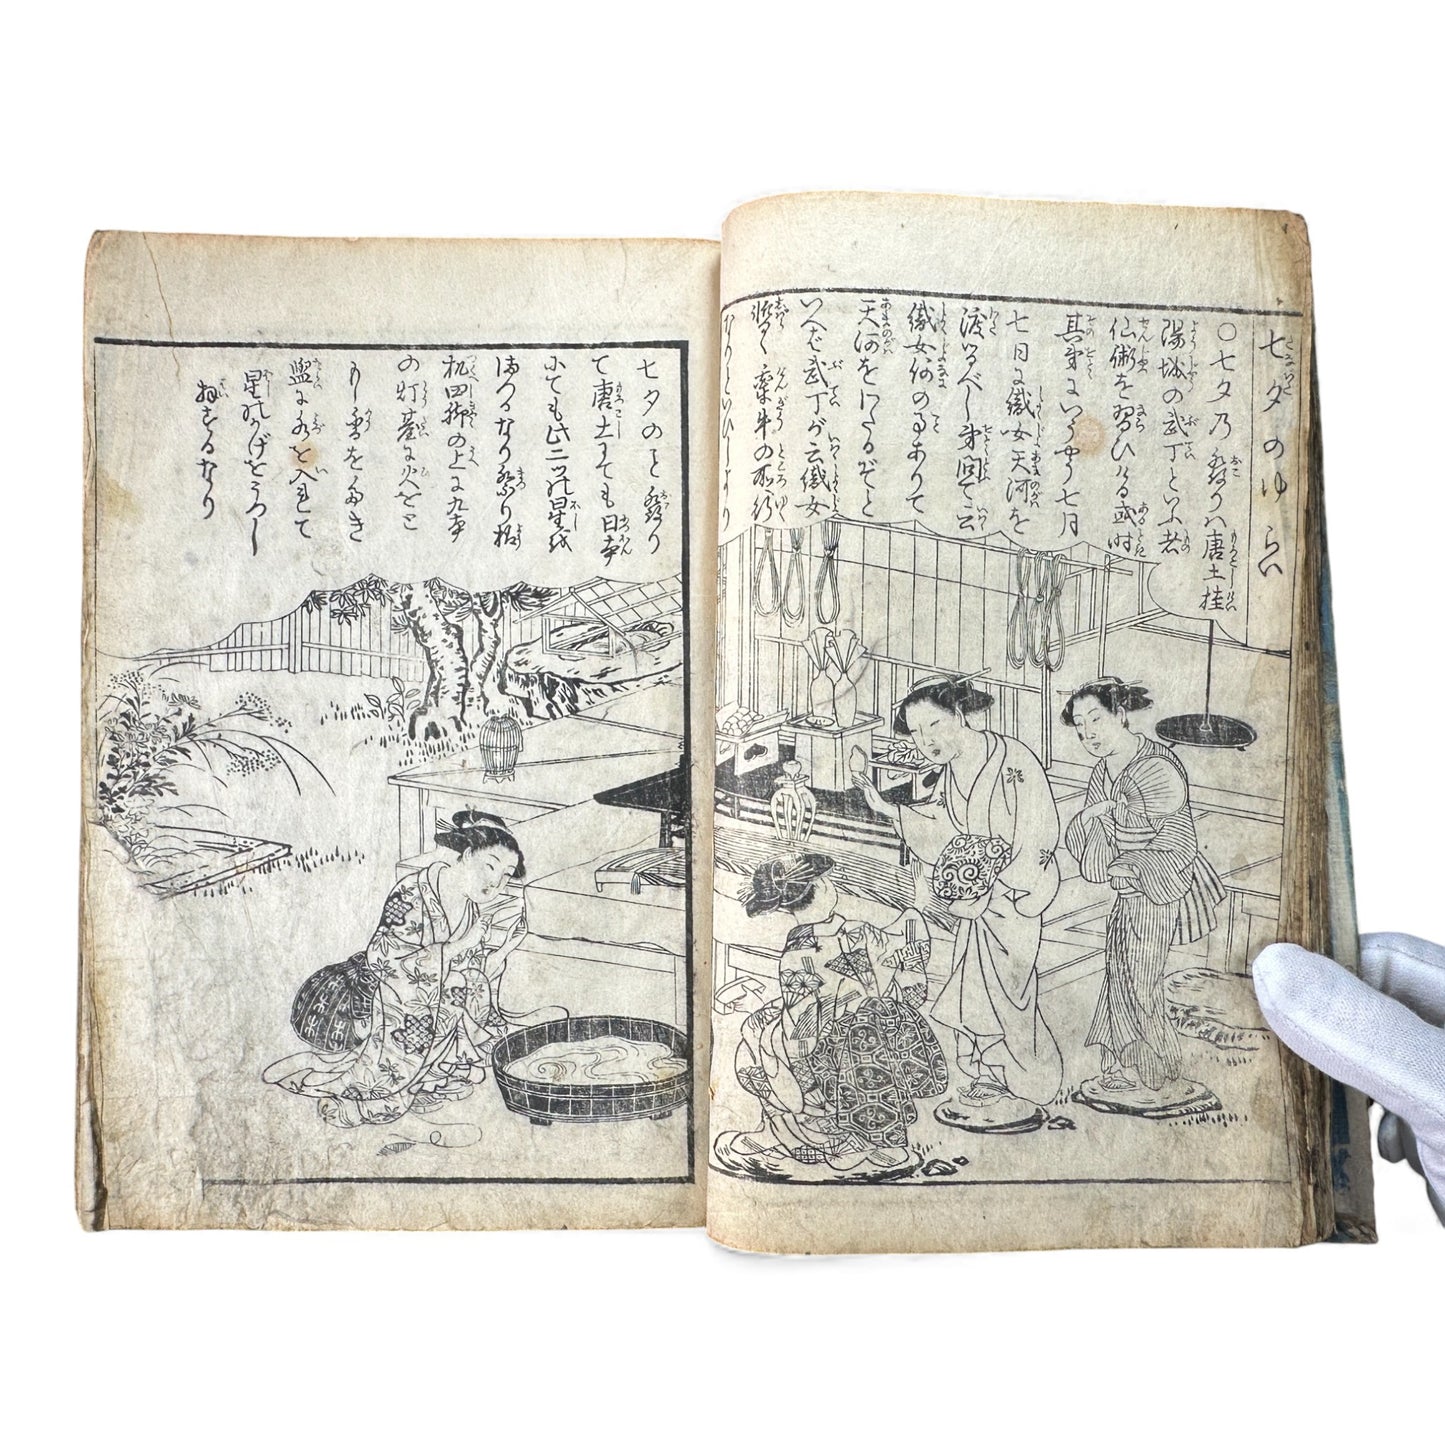 七夕のゆらい
〇七夕乃発りハ唐土桂
陽城の武丁といふ者
仙術を習ひける或時
其弟にいふやう七月
七日に織女天河を
渡るべし弟問て云
織女何の事ありて
天河をわたるぞと
いへば武丁が云織女
暫く牽牛の所行
なりといひしより
七夕のこと発り
て唐土にても日本
にても此二つの星を
まつるなり祭り様
机四脚の上に九本
の灯臺に火をと
もし香をたき
盥に水を入れて
星のかげをうつし
拝するなり